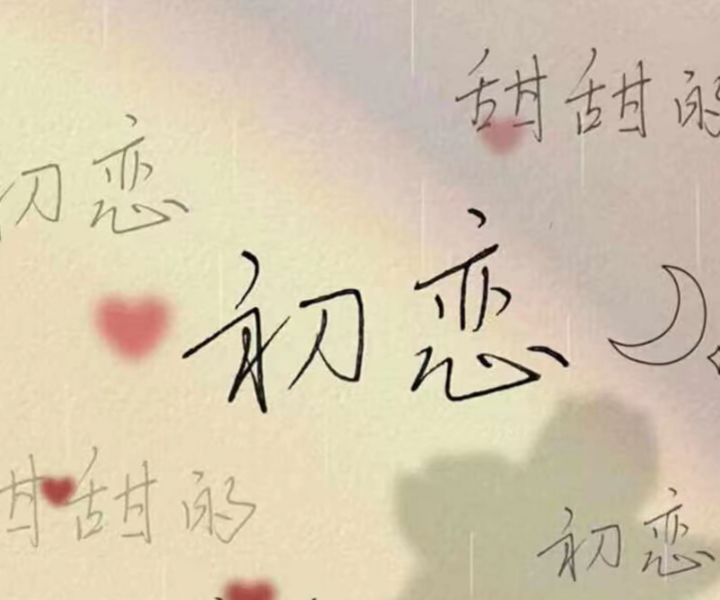 甜甜的
初恋
初恋
甜甜的
初恋